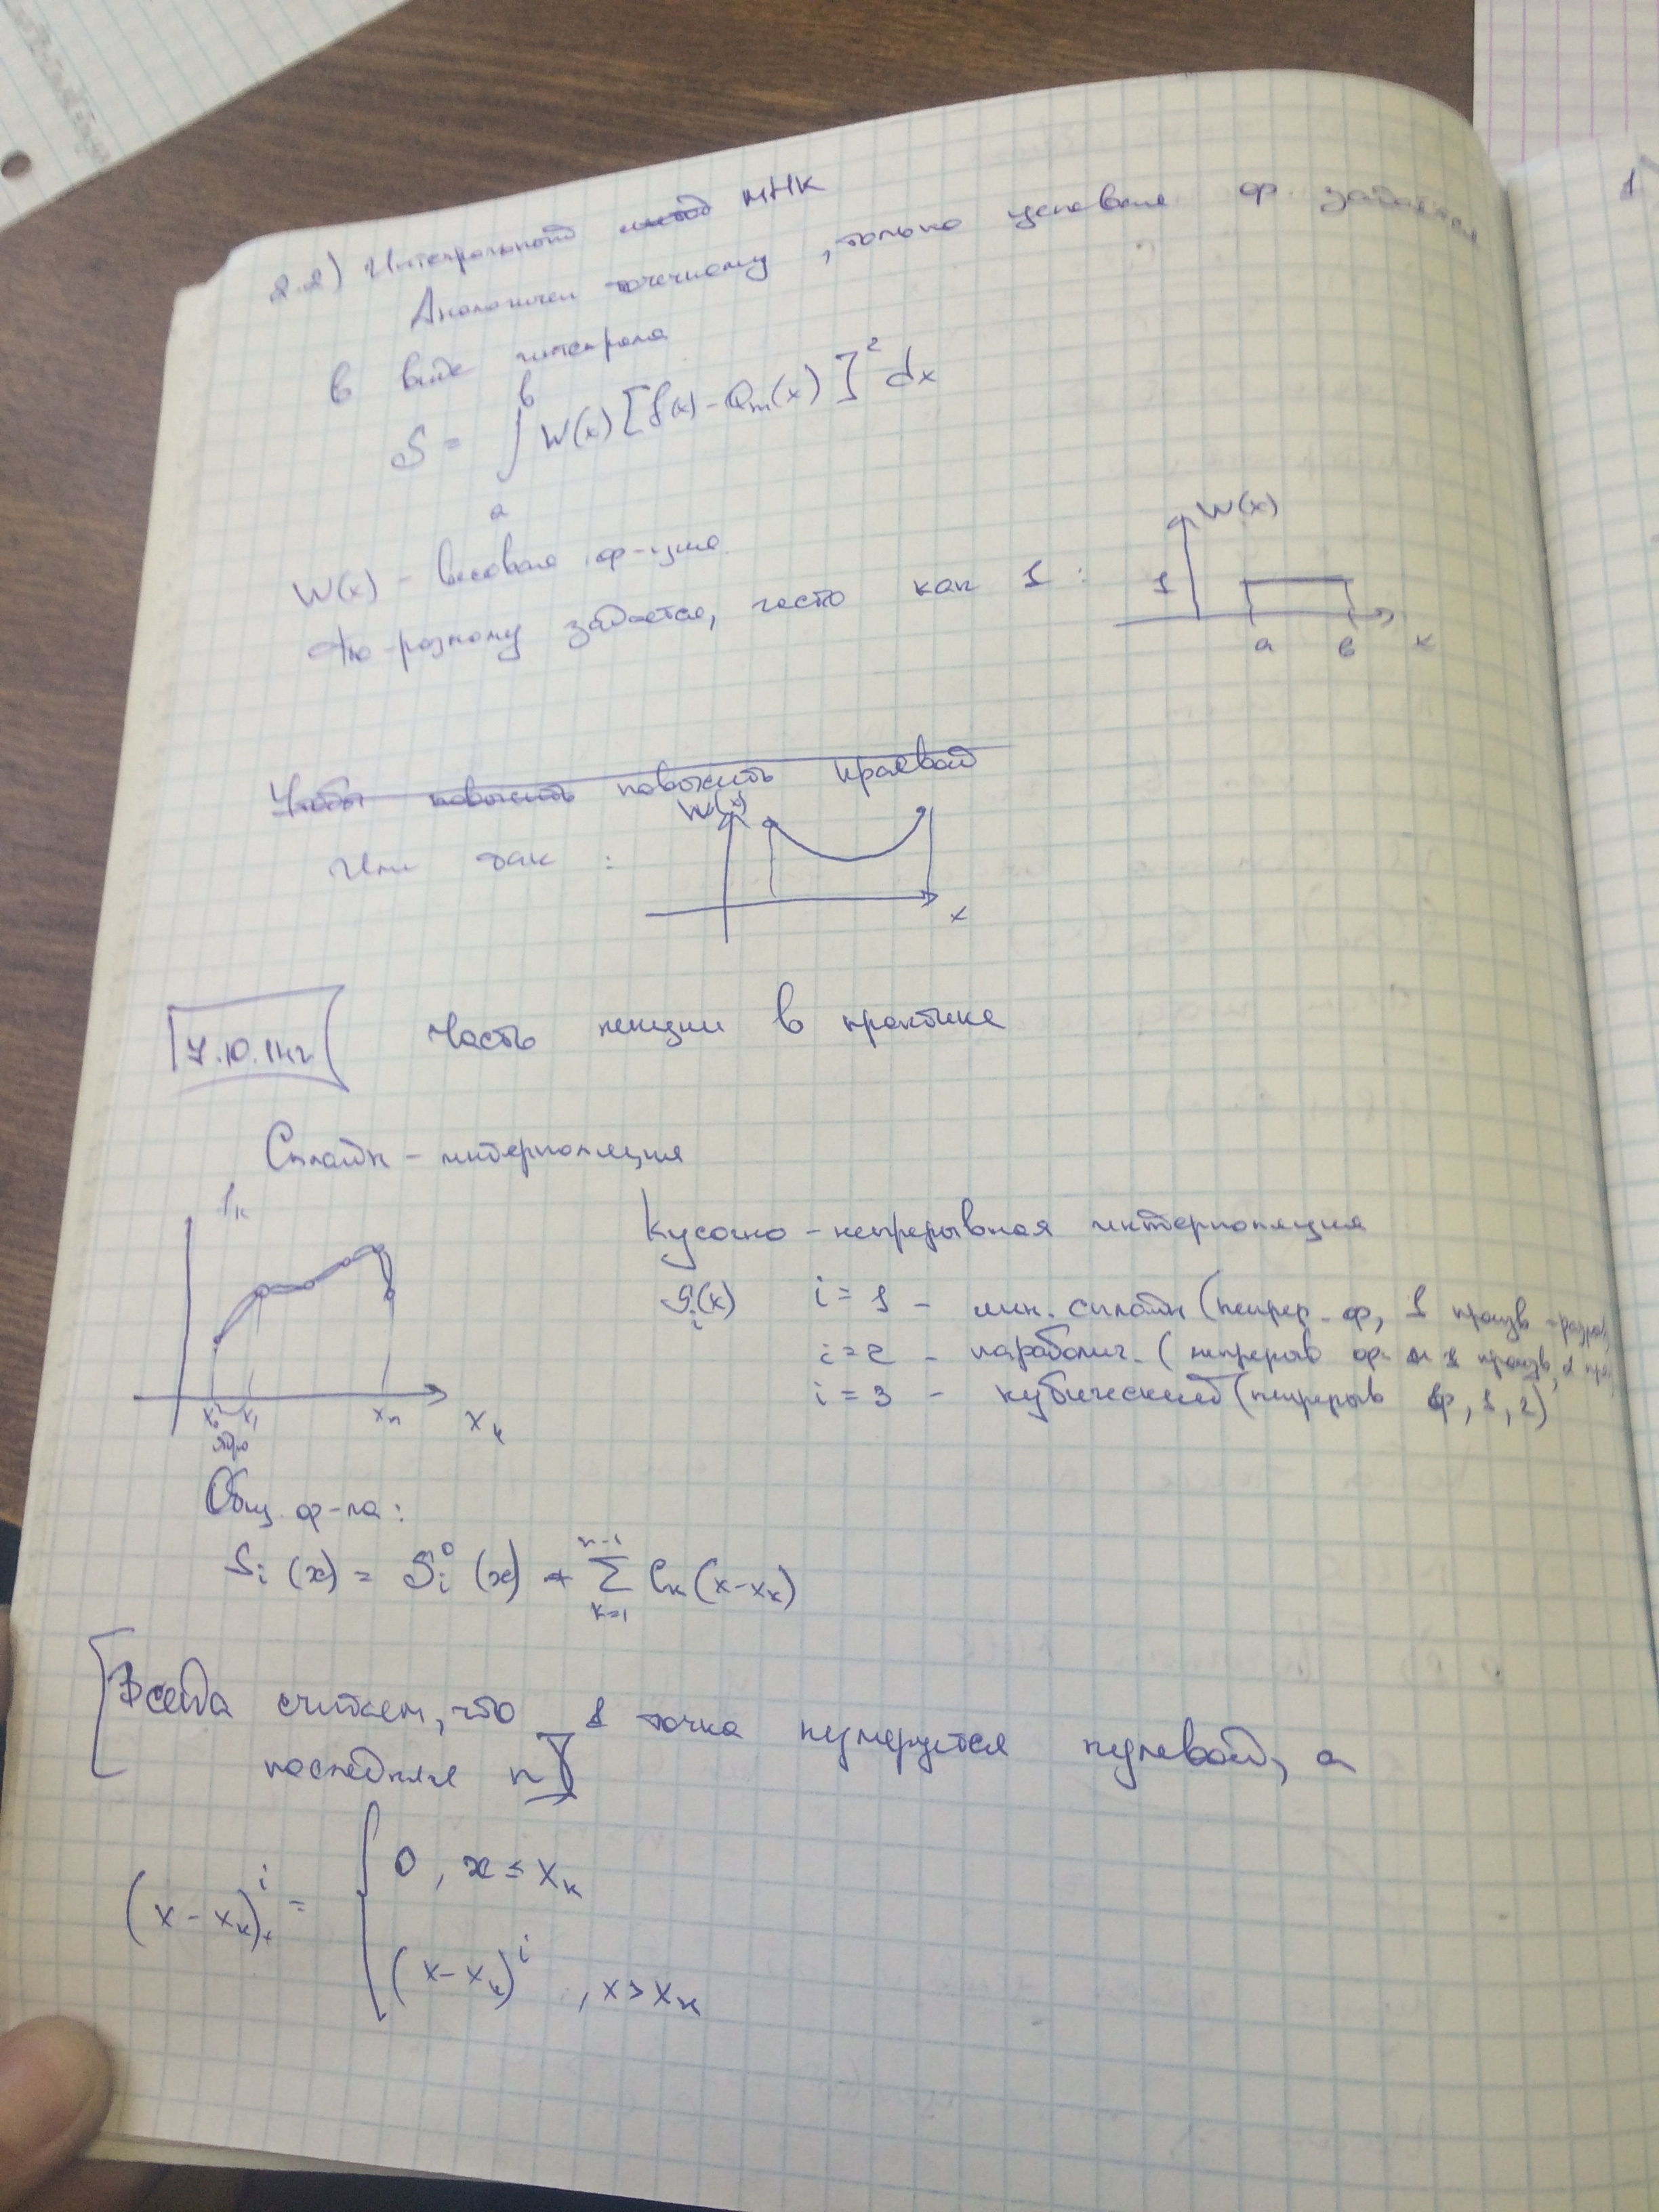 2.2) Интегральный метод МНК
Аналогичен точечному, только условие ф. задается
в виде интеграла
S = ∫ₐᵇ W(x) [f(x) - Qₘ(x)]² dx
W(x) - весовая ф-ция
По-разному задается, часто как 1 :
W(x)
1
a в x
Чтобы повысить повысить краевой
Или так :
W(x)
x
7.10.
Часть лекции в практике
Сплайн - интерполяция
fₖ
x₀ x₁ xₙ xₖ
Кусочно - непрерывная интерполяция
Sᵢ(x) i = 1 - лин. сплайн (непрер. ф, 1 произв - разрыв
i = 2 - параболич. (непрерыв ф. и 1 произв, 2
i = 3 - кубический (непрерыв ф, 1, 2)
Общ. ф-ла :
Sᵢ (x) = Sᵢ⁰ (x) + ∑ₖ₌₁ⁿ⁻¹ Cₖ (x-xₖ)
[Всегда считаем, что 1 точка нумеруется нулевой, а
последняя n]
(x - xₖ)₊ⁱ = { 0 , x ≤ xₖ
(x - xₖ)ⁱ , x > xₖ